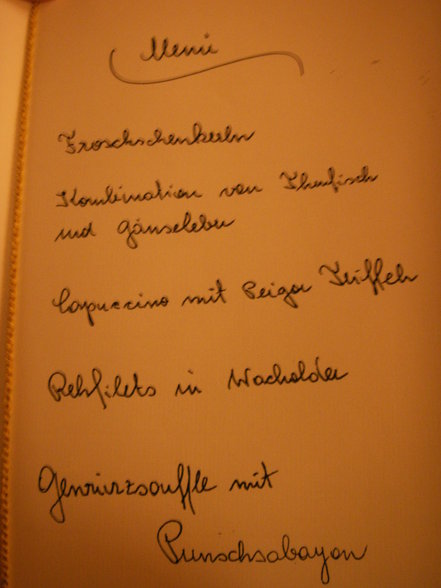 Menü
Froschschenkerln
Kombination von Thunfisch
und Gänseleber
Capuccino mit Perigor Trüffeln
Rehfilets in Wacholder
Gewürzsouffle mit
Punschsabayon